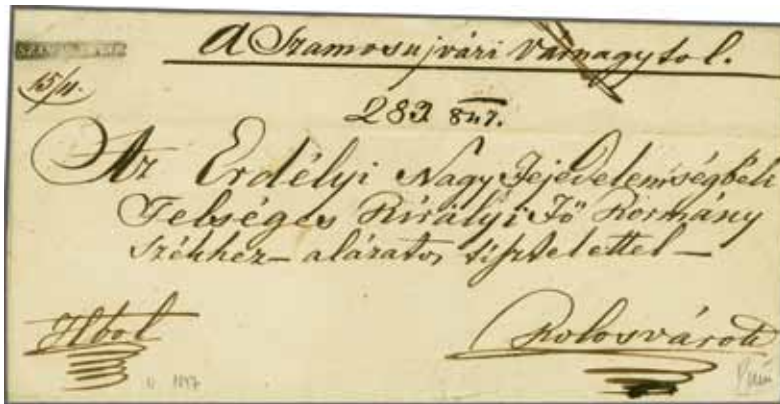 A Szamosujvári Várnagytol.
15/4.
283 847.
Az Erdélyi Nagy Fejedelemségbéli
Felséges Királyi Fő Kormány
székhez – alázatos tisztelettel –
Kolosvárott
1847